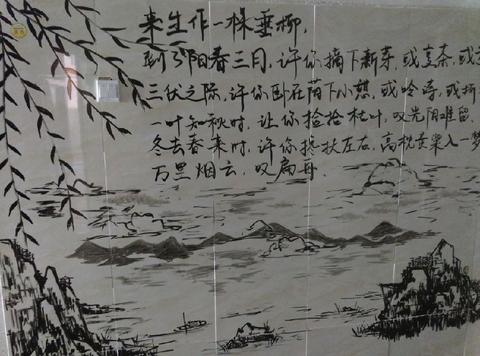 来生作一棵垂柳,
到了阳春三月,许你摘下新芽,或烹茶,或
三伏之际,许你卧在荫下小憩,或吟诗,或
一叶知秋时,让你捡拾枯叶,叹光阴难留,
冬去春来时,许你搀扶左右,高枕黄粱入一梦
万里烟云,叹扁舟.